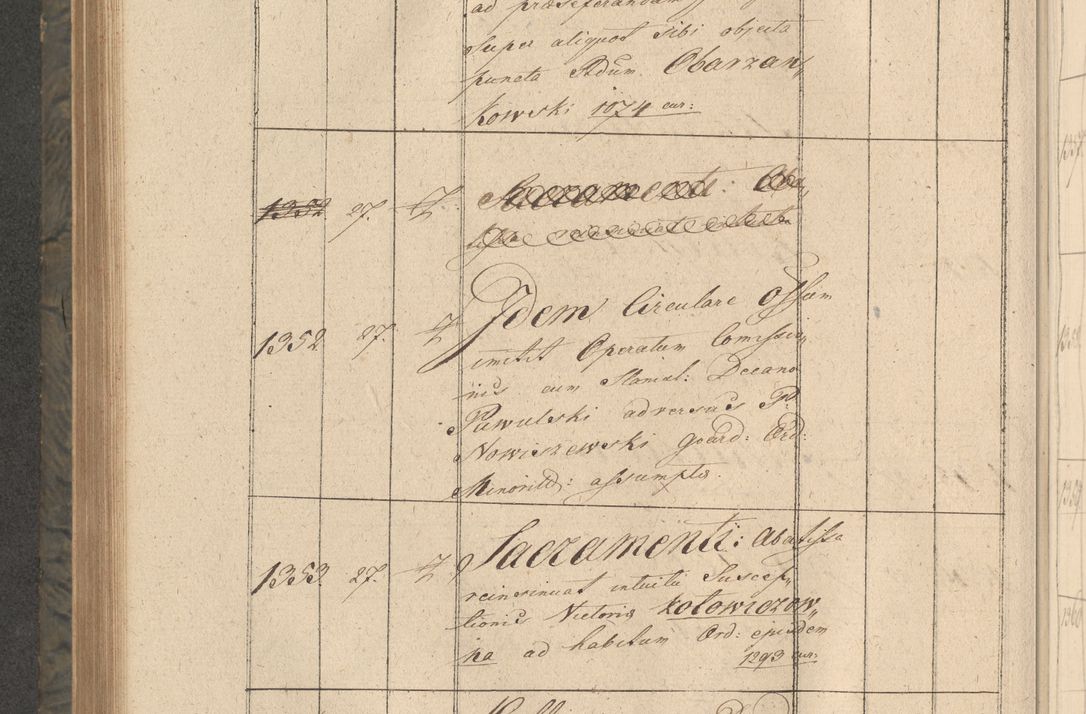 ad præferendam
super aliquot sibi objecta
puncta Adum. Obarzan„
kowski 1074 cur:
1352 27. 7 Sacramenti: Aba„
1352 27. 7 Idem Circulare Offium
imitit Operatum Comissio„
nis cum Stanisl: Decano
Puwulski adversus P.
Nowiszewski Guard: Ord:
Minorit: assumpto.
1353 27. 7 Sacramenti: Abatissa
reinsinuat intuitu Suscep„
tionis Victoris Kotowiczow„
na ad habitum Ord: ejusdem
1293 cur: